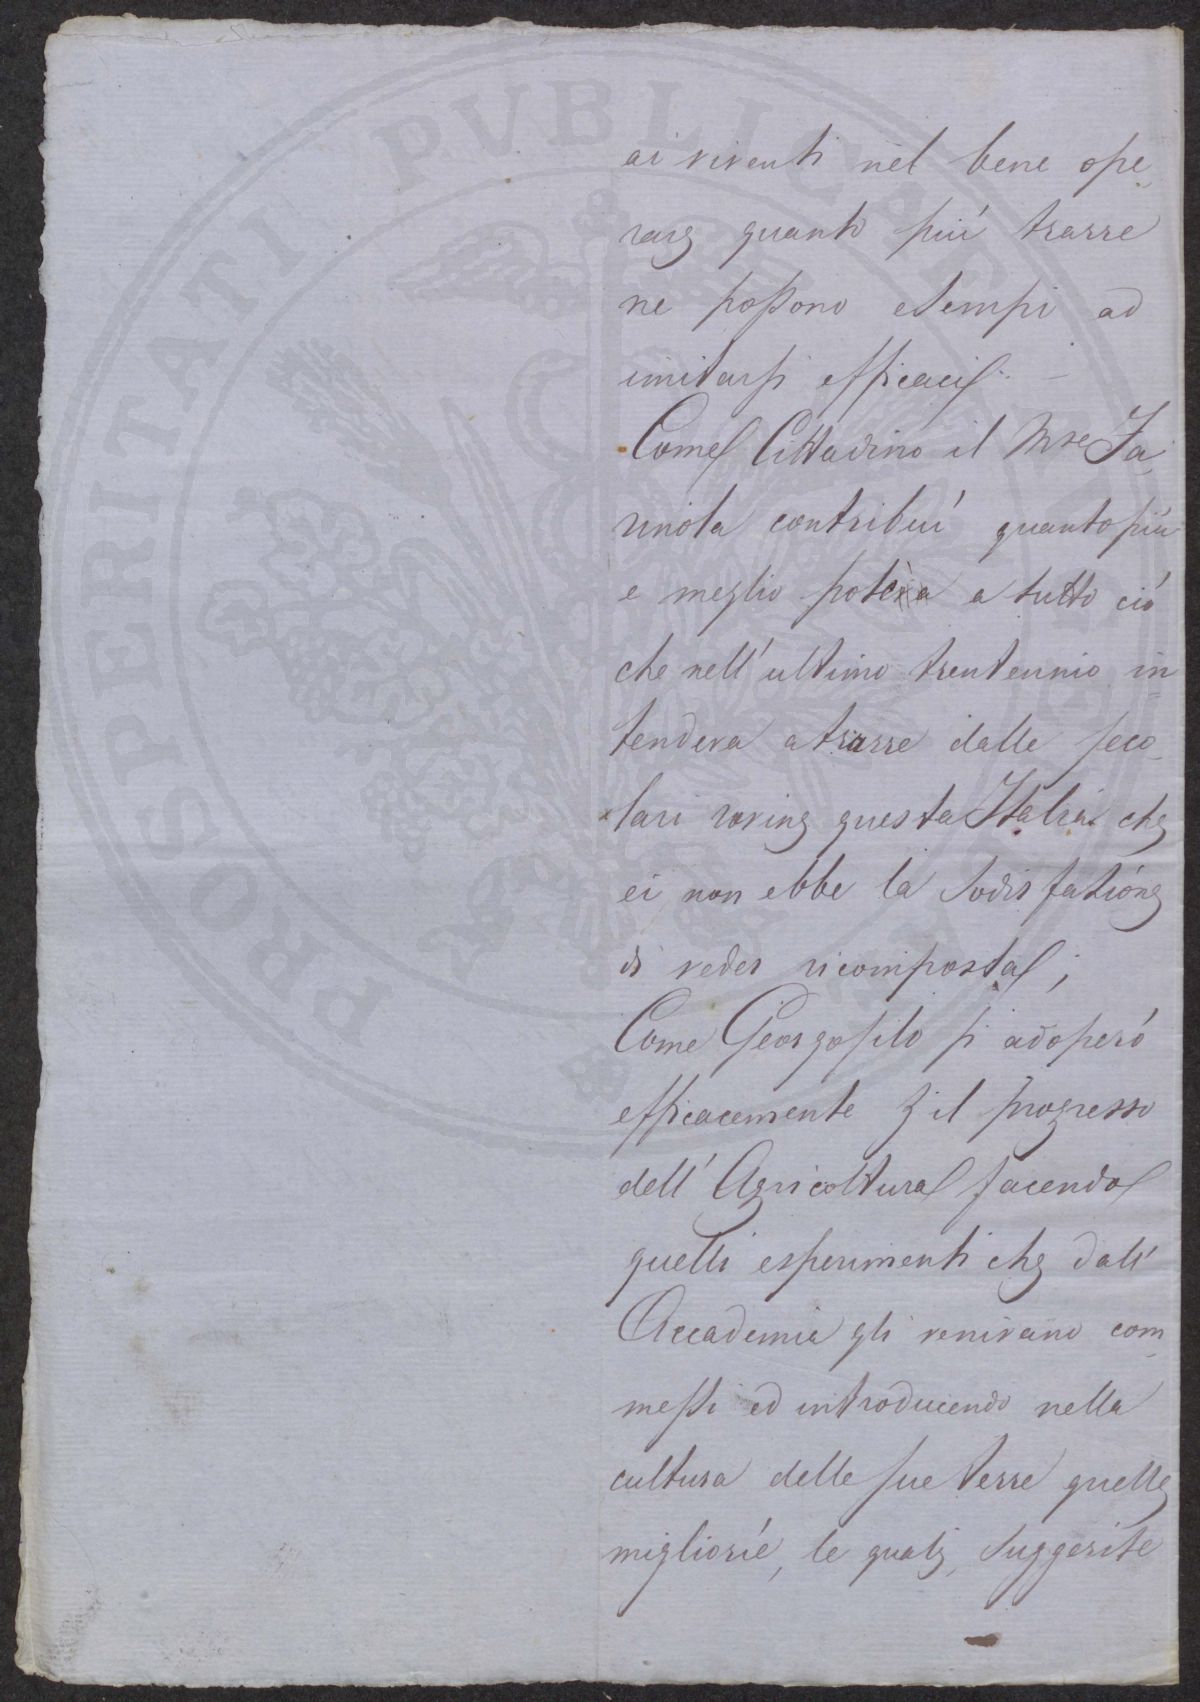 ai viventi nel bene ope
rare quanto più trarre
ne possono esempi ad
imitarsi efficaci. –
Come Cittadino il Mse
contribuì quanto più
e meglio potè a tutto ciò
che nell'ultimo trentennio in=
tendeva a trarre dalle seco-
lari rovine questa Italia che
ei non ebbe la sodisfazione
di veder ricomposta;
Come Georgofilo si adoperò
efficacemente il progresso
dell'Agricoltura facendo
quelli esperimenti che dall'
Accademia gli venivano com
messi ed introducendo nella
cultura delle sue terre quelle
migliorie, le quali, suggerite
PROSPERITATI PVBLICAE